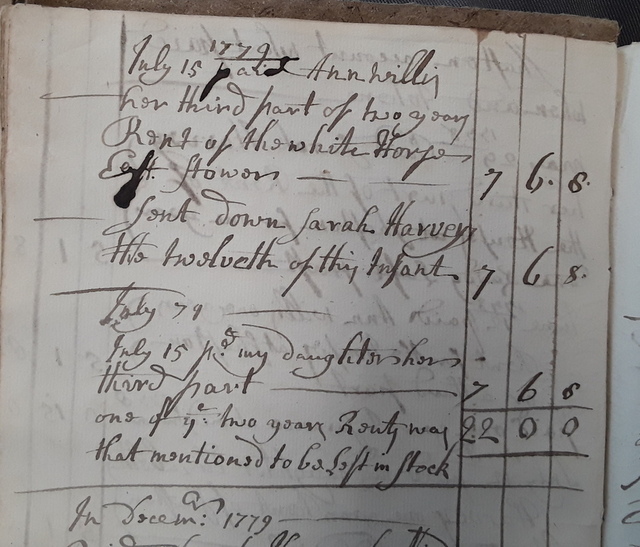 1779
July 15 paid Ann Willis
her third part of two years
Rent of the white Horse
East Stowers 7 6. 8.
Sent down Sarah Harveys
the twelveth of this Instant 7 6 8.
July 79
July 15 pd my daughters hers
third part 7 6 8
one of ye: two years Rents was 22 0 0
that mentioned to be Left in Stock
In decemr: 1779